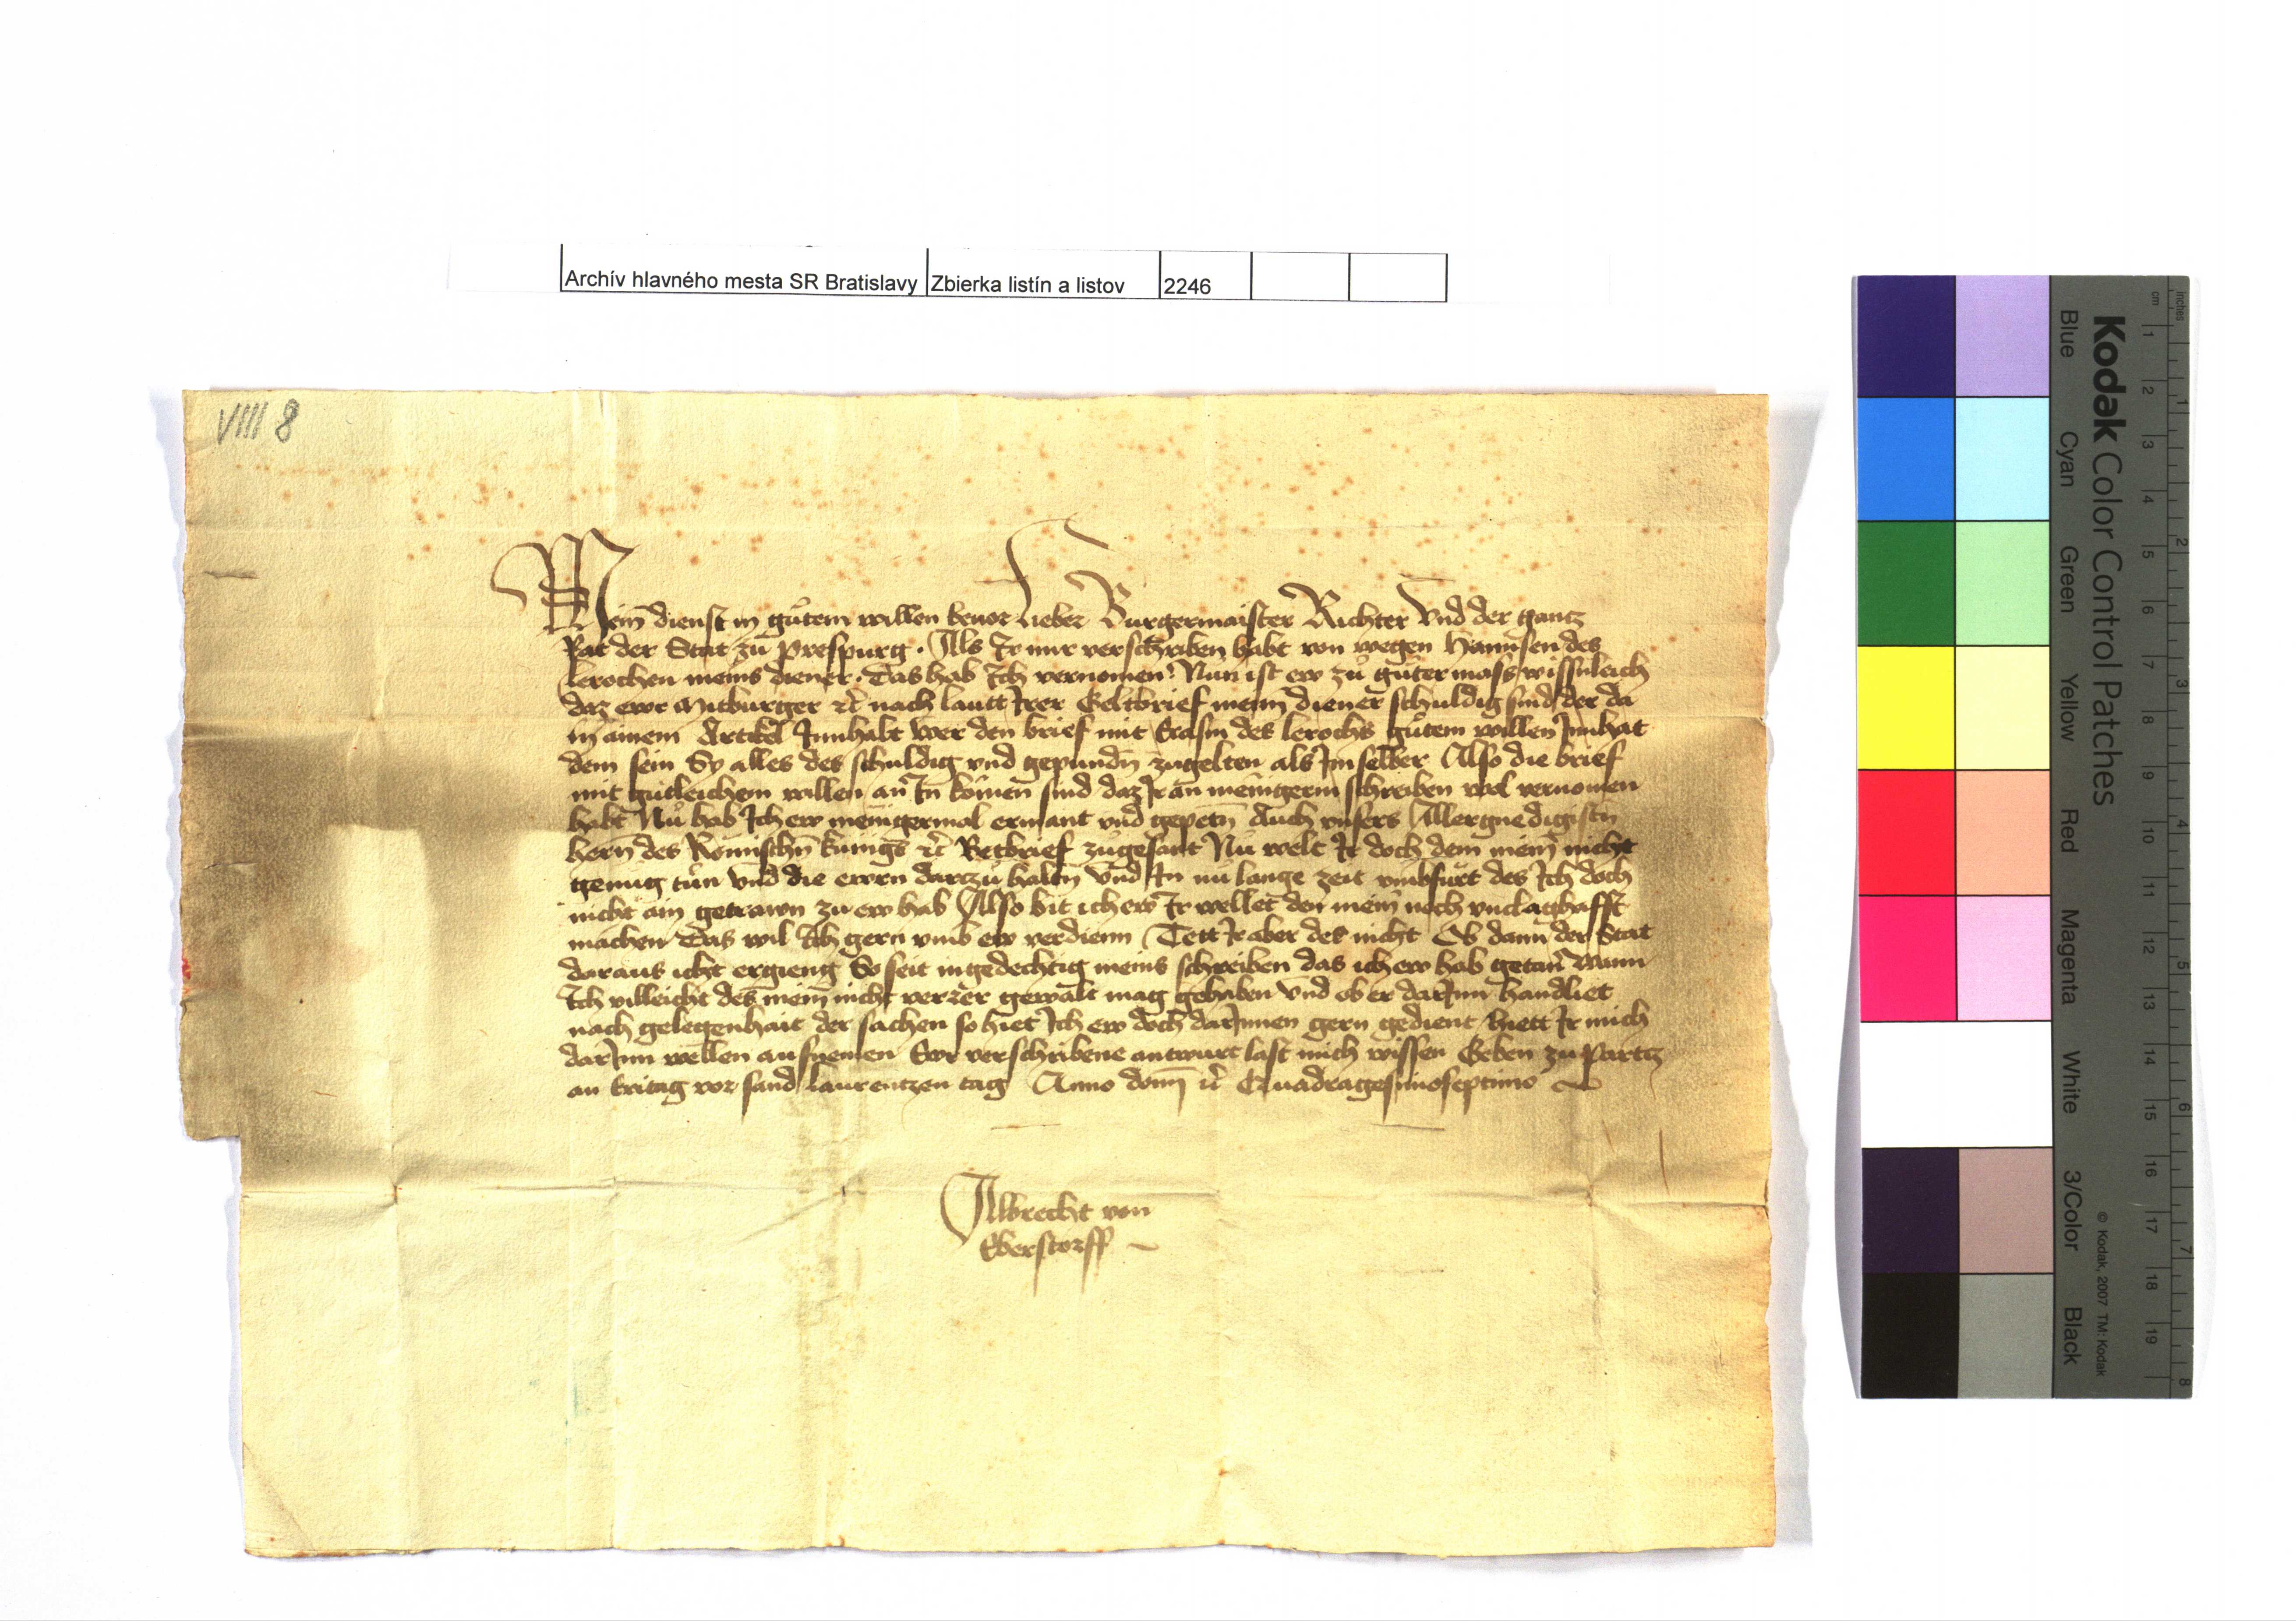 Archív hlavného mesta SR Bratislavy Zbierka listín a listov 2246
VIIII 8
Mein dienst in gůtem willen beuor lieber Burgermaister Richter Vnd der gantz
Rat der Stat zů Prespurg. Als Ir mir verschriben habt von wegen Hannsen des
lerochen meins diener. Das hab Ich vernomen. Nun ist ew zů gůter mass wissnleich
daz ewr Mitburger etc nach lautt Irer Geltbrief meim diener schuldig sind der da
in ainem Artikel Innhabt Wer den brief mit Erasm des lerochs gůtem willen Innhat
dem sein Sy alles des schuldig vnd gepundn zugelten als Im selber Also die brief
mit gůtleichem willen an In komen sind daz Ir an menigerm schreiben wol vernomen
habt Nů hab Ich ew menigermal ermant vnd gepetn Auch vnsers Allergnedigistn
hern des Romischn kunigs etc Betbrief zůgesant Nů welt Ir doch dem meim nicht
genug tůn vnd die ewrn dartzů haltn vnd In nů lange zeit vmbfůrt des Ich doch
nicht ain getrawn zu ew hab Also bit ich ew Ir wellet den mein noch vnclaghafft
machen Das wil Ich gern vmb ew verdienn Tett Ir aber des nicht Ob dann der Stat
daraus icht ergieng So seit ingedechtig meins schreiben das ich ew hab getan wann
Ich villeicht des meim nicht verrer gewalt mag gehaben vnd ob er darInn handliet
nach gelegenhait der sachen so hiet Ich ew doch darInnen gern gedient hiett Ir mich
darInn wellen aufnemen Ewr verschribene antwurt last mich wissen Geben zu Partz
an fritag vor sand laurentzen tag Anno domni etc Quadragesimoseptimo
Albrecht von
Eberstorff
Kodak Color Control Patches
Blue Cyan Green Yellow Red Magenta White 3/Color Black
© Kodak, 2007 TM: Kodak
inches 1 2 3 4 5 6 7 8
cm 1 2 3 4 5 6 7 8 9 10 11 12 13 14 15 16 17 18 19